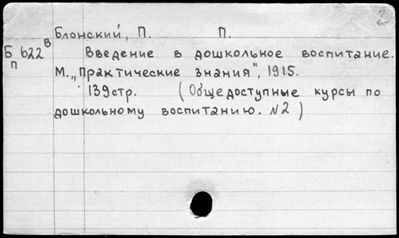 Блонский, П. П.
Б 622 в
п
Введение в дошкольное воспитание.
М. „Практические знания", 1915.
139 стр. (Общедоступные курсы по
дошкольному воспитанию. №2)